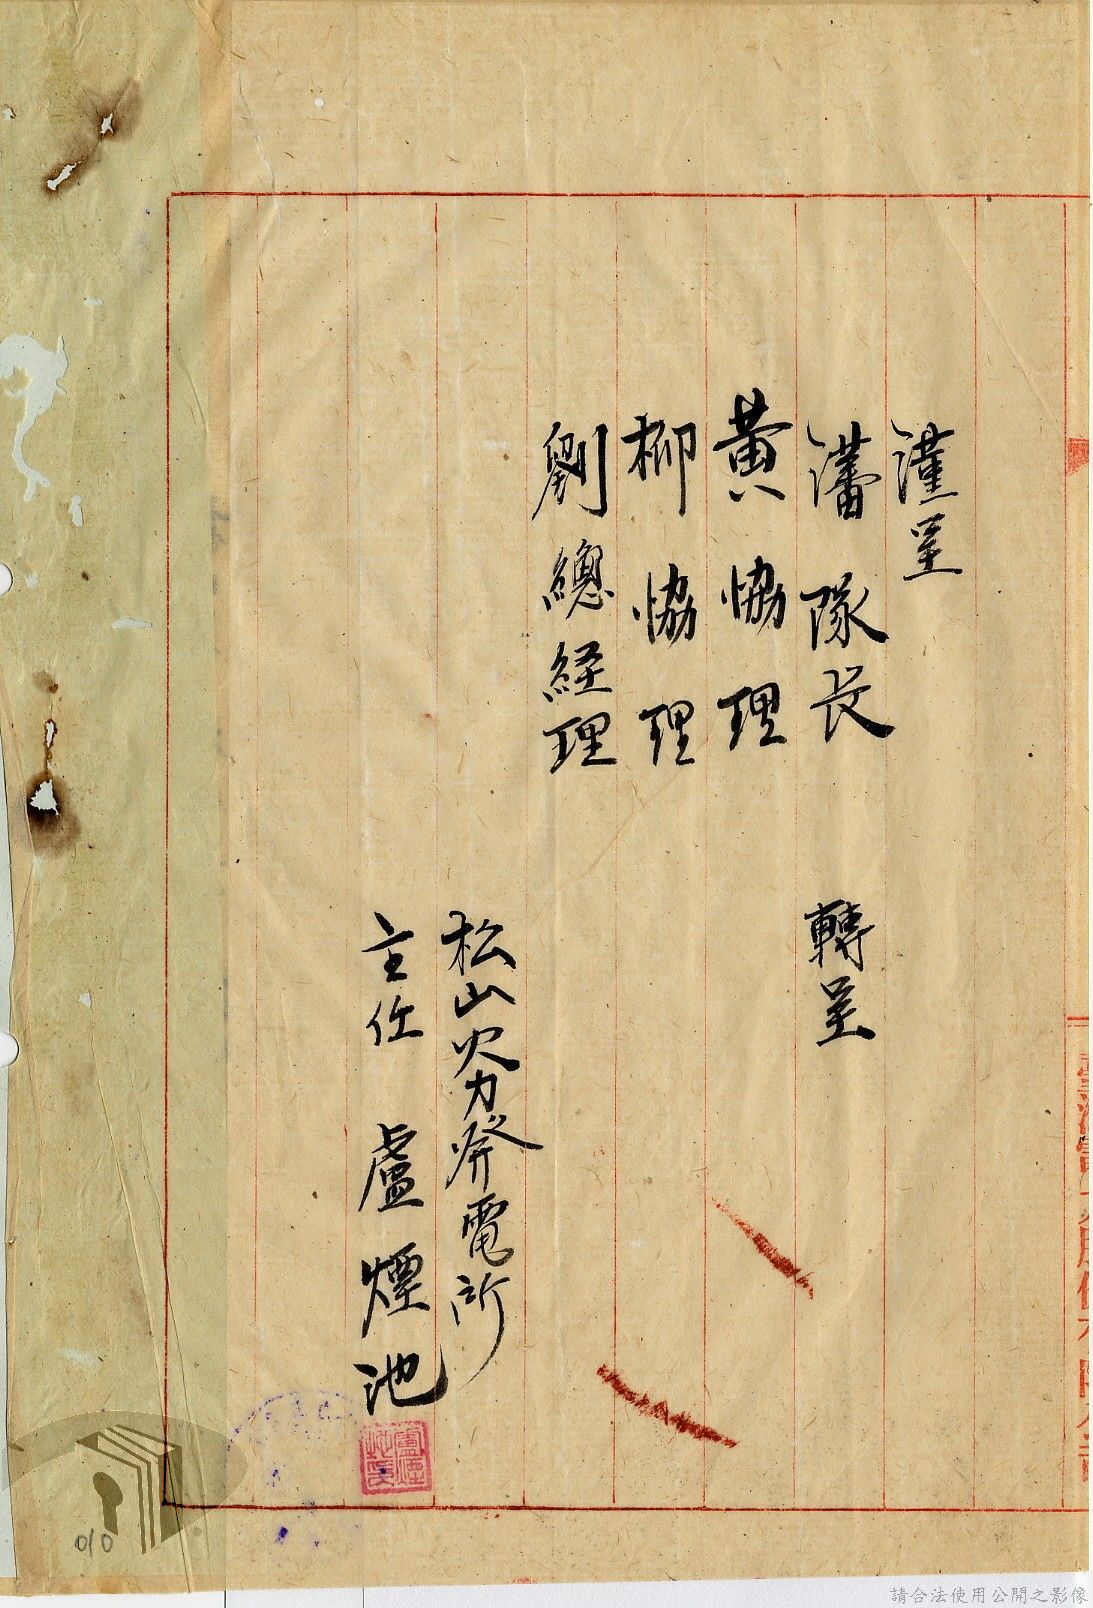 謹呈
潘隊長 轉呈
黃協理
柳協理
劉總經理
松山火力発電所
主任 盧煙池
盧煙池印
010
請合法使用公開之影像